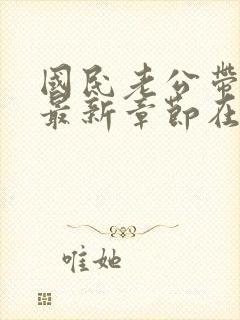 國民老公帶
最新章節在
唯她